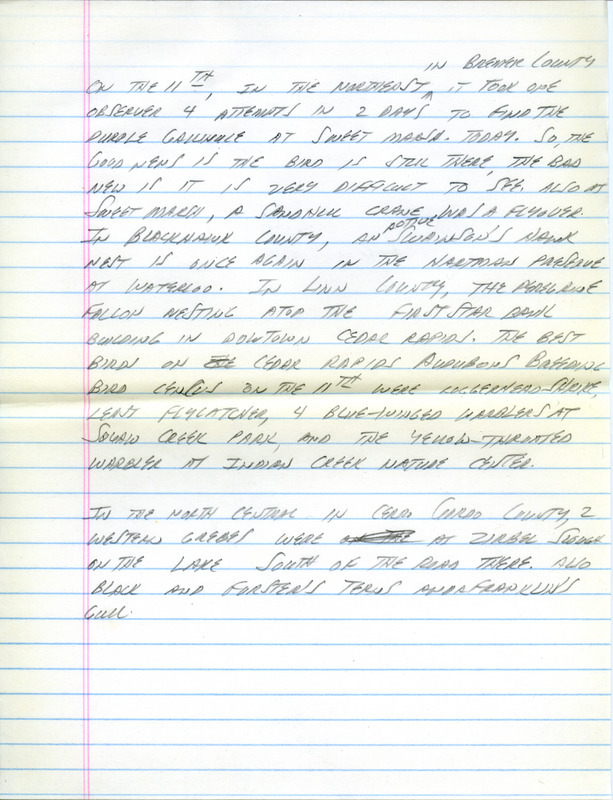 IN BREMER COUNTY
ON THE 11TH, IN THE NORTHEAST ^ IT TOOK ONE
OBSERVER 4 ATTEMPTS IN 2 DAYS TO FIND THE
PURPLE GALLINULE AT SWEET MARSH. TODAY. SO, THE
GOOD NEWS IS THE BIRD IS STILL THERE, THE BAD
NEW IS IT IS VERY DIFFICULT TO SEE. ALSO AT
SWEET MARSH, A SANDHILL CRANE WAS A FLYOVER.
IN BLACKHAWK COUNTY, AN ACTIVE SWAINSON'S HAWK
NEST IS ONCE AGAIN IN THE HARTMAN PRESERVE
AT WATERLOO. IN LINN COUNTY, THE PEREGRINE
FALCON NESTING ATOP THE FIRSTSTAR BANK
BUILDING IN DOWTOWN CEDAR RAPIDS. THE BEST
BIRDS ON CEDAR RAPIDS AUDUBONS BREEDING
BIRD CENSUS ON THE 11TH WERE LOGGERHEAD SHRIKE,
LEAST FLYCATCHER, 4 BLUE-WINGED WARBLERS AT
SQUAW CREEK PARK, AND THE YELLOW-THROATED
WARBLER AT INDIAN CREEK NATURE CENTER.
IN THE NORTH CENTRAL IN CERRO GORDO COUNTY, 2
WESTERN GREBES WERE AT ZIRBEL SLOUGH
ON THE LAKE SOUTH OF THE ROAD THERE. ALSO
BLACK AND FORSTER'S TERNS AND A FRANKLIN'S
GULL.